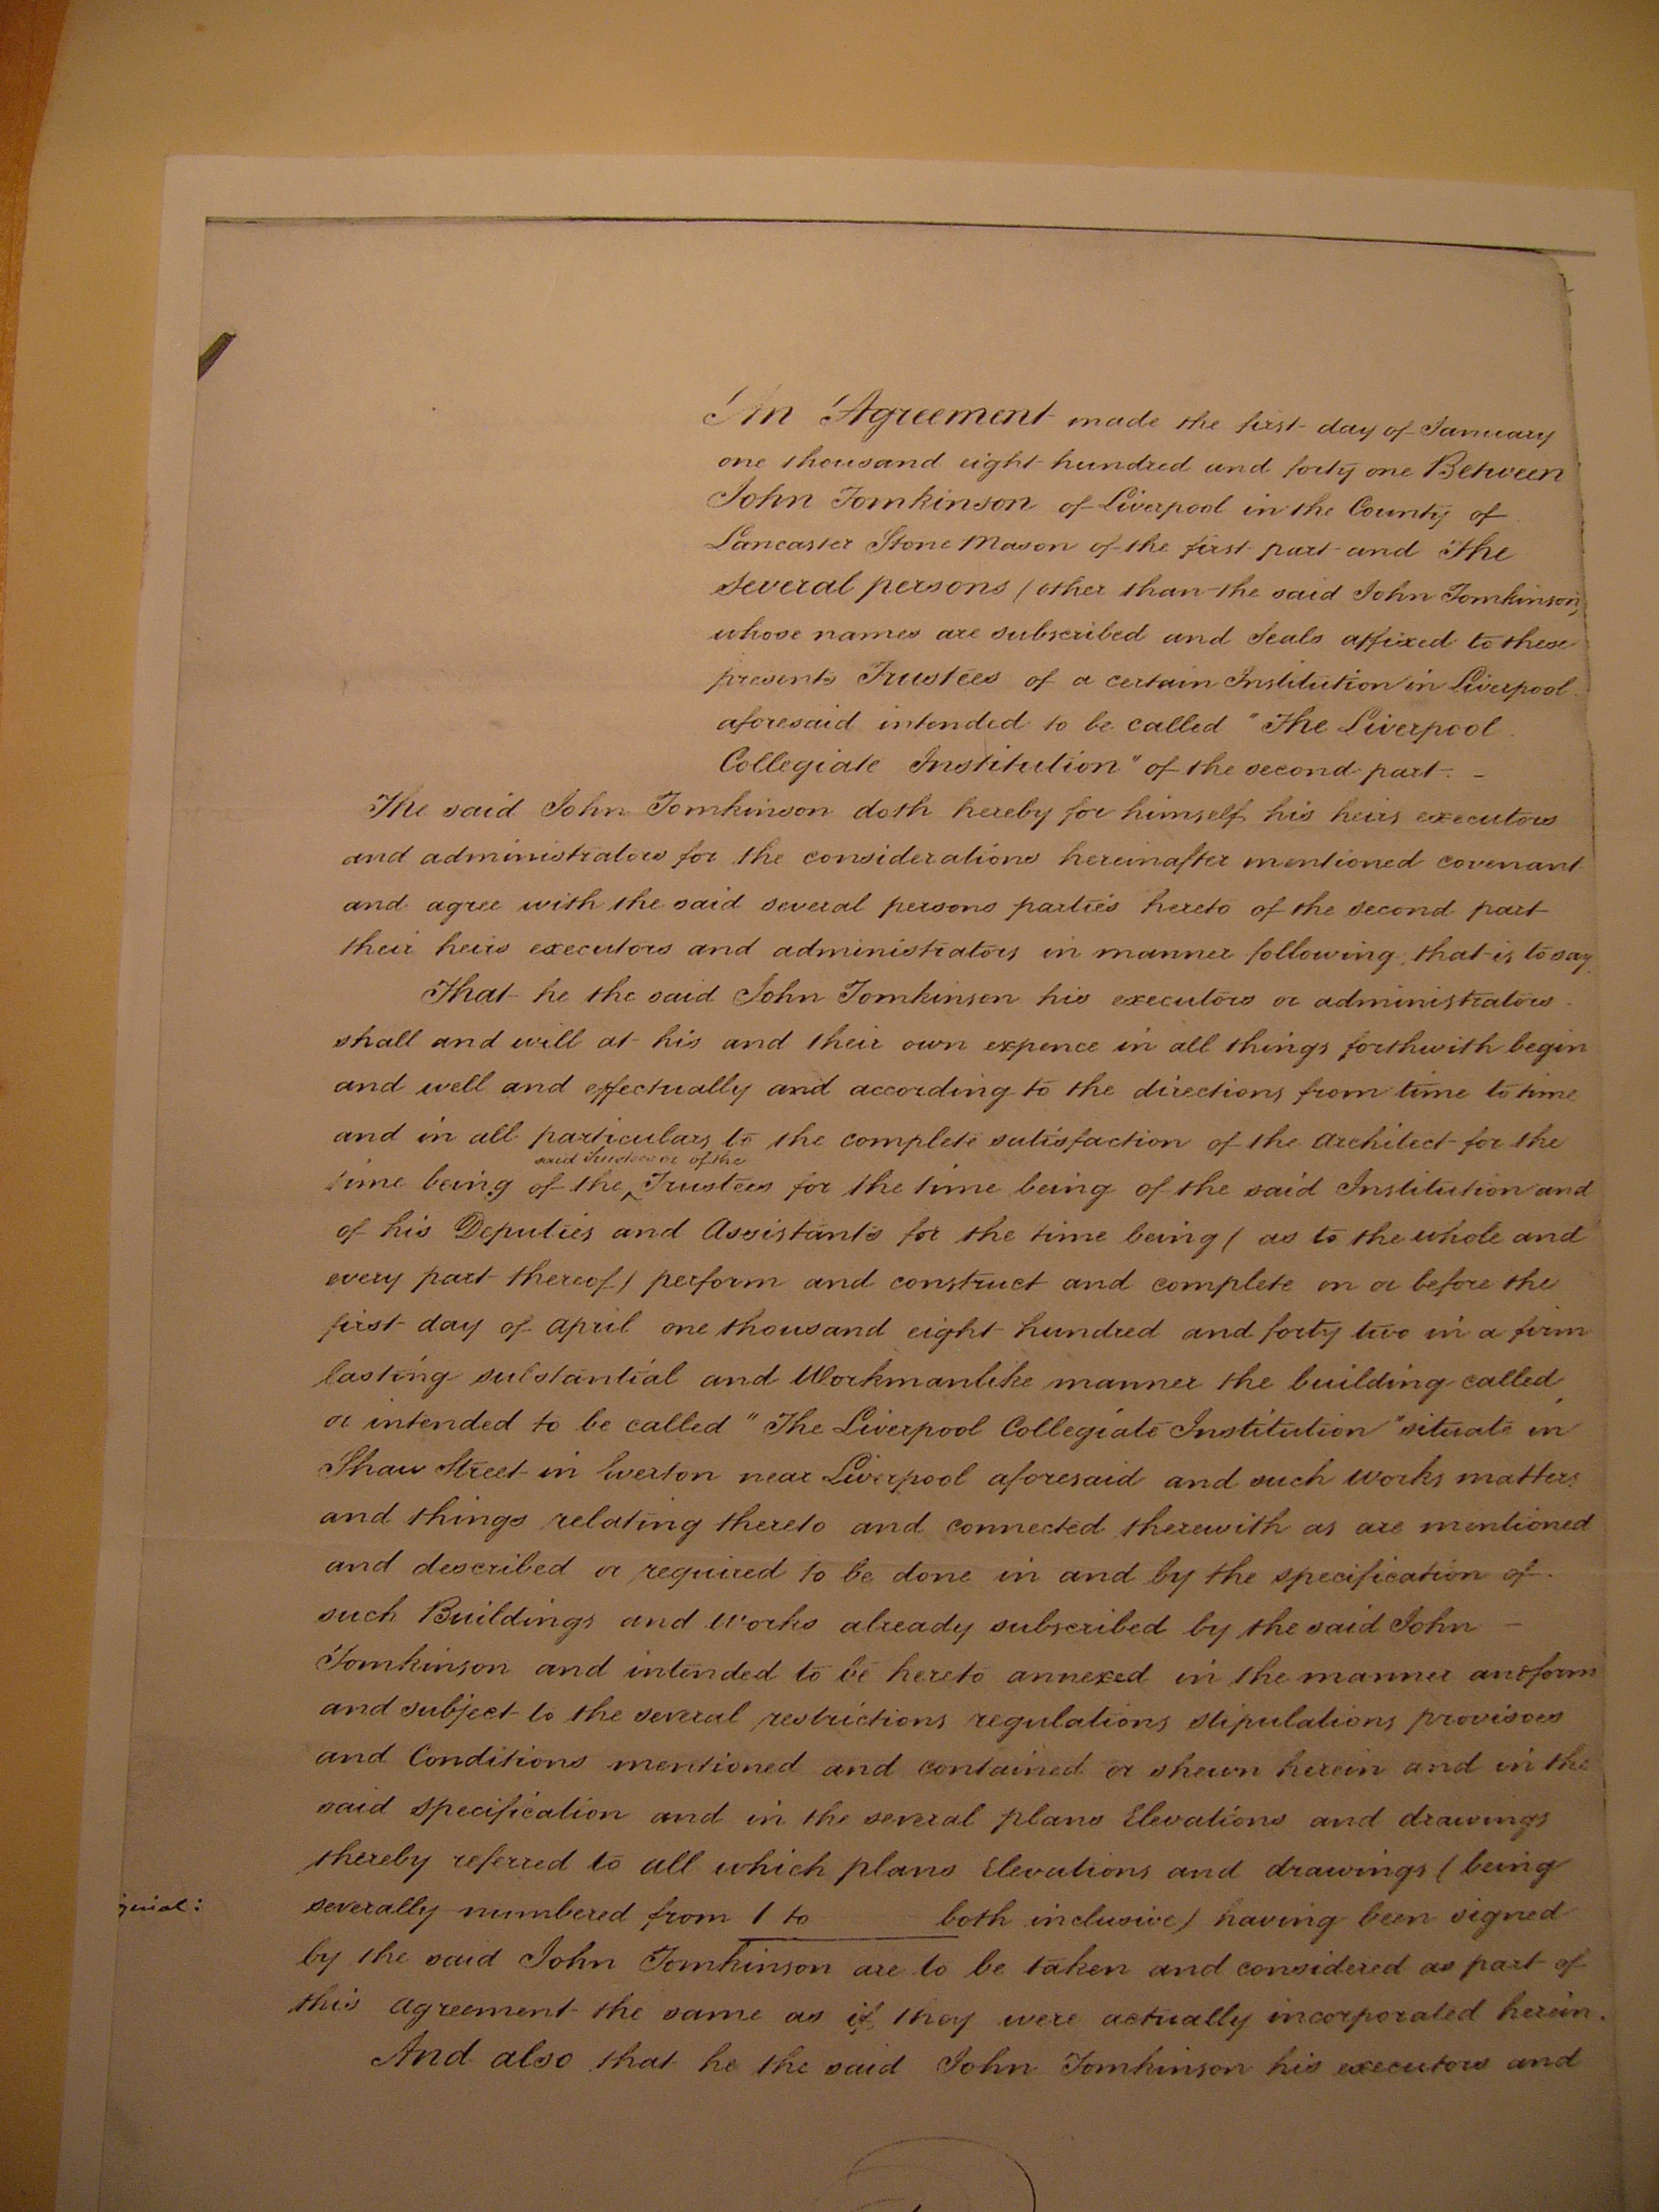 An Agreement made the first day of January
one thousand eight hundred and forty one Between
John Tomkinson of Liverpool in the County of
Lancaster Stone Mason of the first part and The
several persons (other than the said John Tomkinson)
whose names are subscribed and Seals affixed to these
presents Trustees of a certain Institution in Liverpool
aforesaid intended to be called "The Liverpool
Collegiate Institution" of the second part. -
The said John Tomkinson doth hereby for himself his heirs executors
and administrators for the considerations hereinafter mentioned covenant
and agree with the said several persons parties hereto of the second part
their heirs executors and administrators in manner following that is to say
That he the said John Tomkinson his executors or administrators
shall and will at his and their own expence in all things forthwith begin
and well and effectually and according to the directions from time to time
and in all particulars to the complete satisfaction of the Architect for the
said Trustees or of the
time being of the Trustees for the time being of the said Institution and
of his Deputies and Assistants for the time being (as to the whole and
every part thereof) perform and construct and complete on or before the
first day of April one thousand eight hundred and forty two in a firm
lasting substantial and Workmanlike manner the building called
or intended to be called "The Liverpool Collegiate Institution" situate in
Shaw Street in Everton near Liverpool aforesaid and such works matters
and things relating thereto and connected therewith as are mentioned
and described or required to be done in and by the specification of
such Buildings and Works already subscribed by the said John -
Tomkinson and intended to be hereto annexed in the manner and form
and subject to the several restrictions regulations stipulations provisoes
and Conditions mentioned and contained or shewn herein and in the
said specification and in the several plans Elevations and drawings
thereby referred to all which plans Elevations and drawings (being
severally numbered from 1 to both inclusive) having been signed
by the said John Tomkinson are to be taken and considered as part of
this Agreement the same as if they were actually incorporated herein.
And also that he the said John Tomkinson his executors and